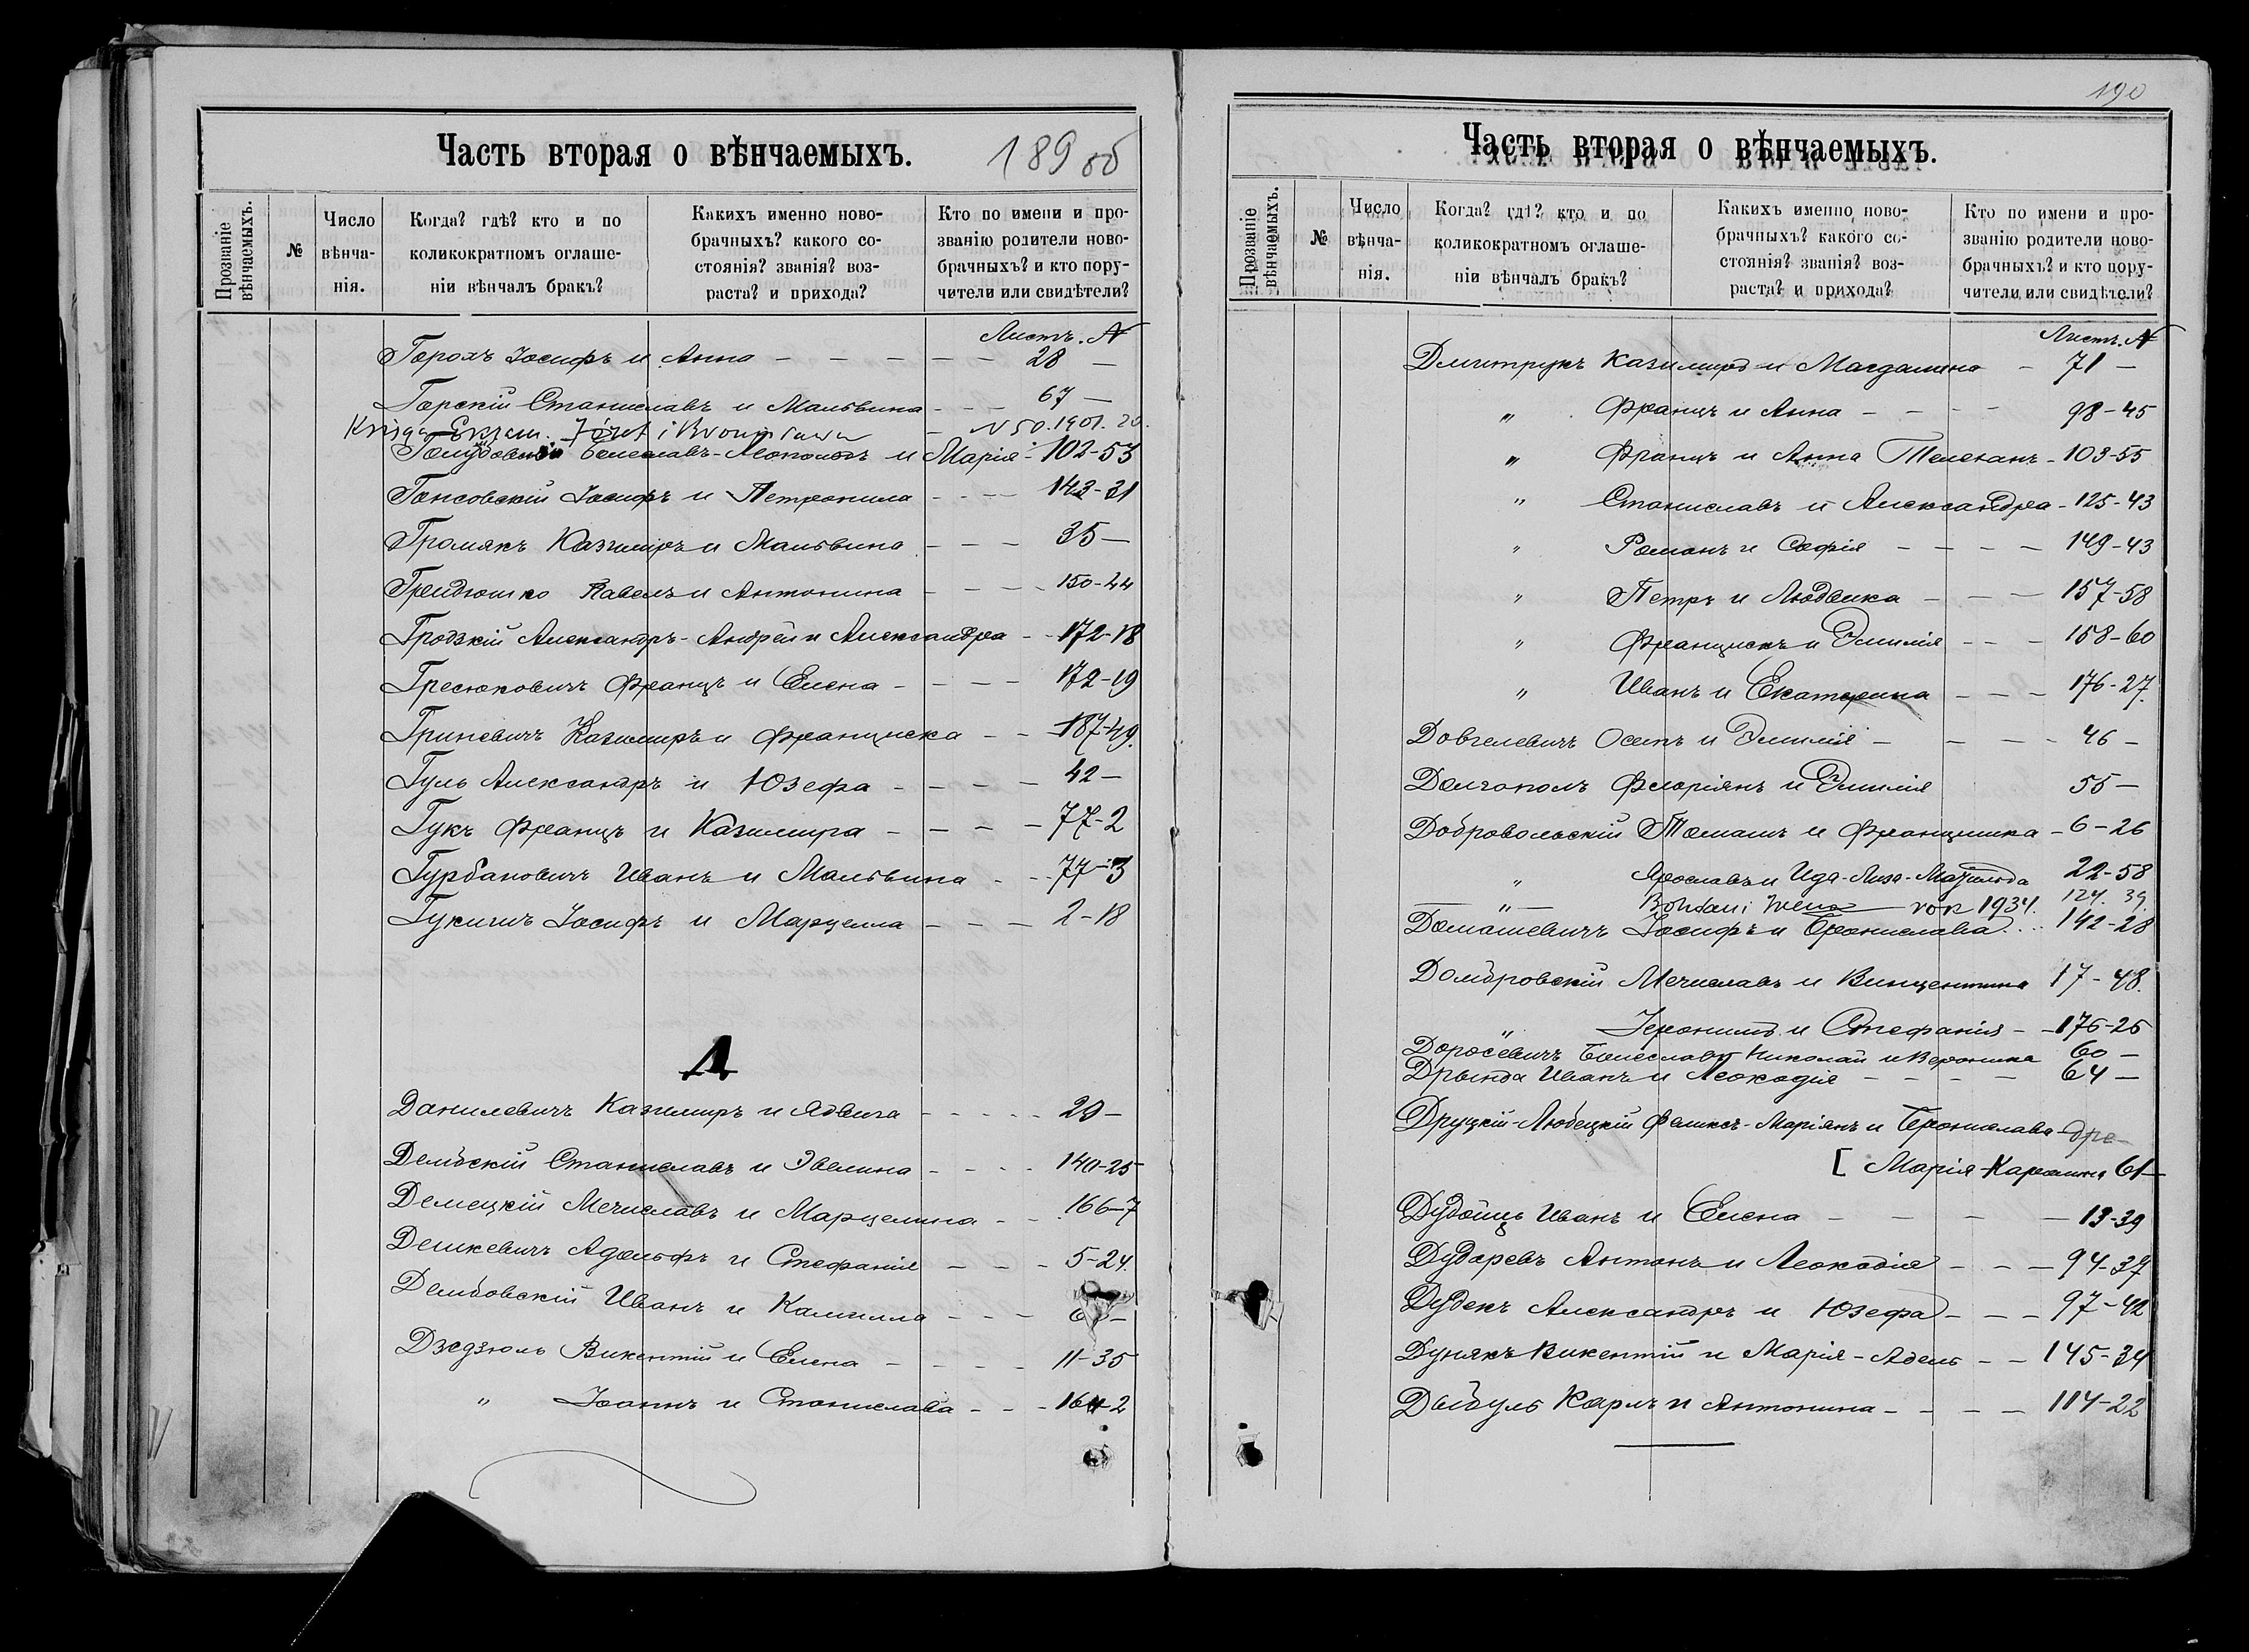 Часть вторая о вѣнчаемыхъ.
189 об
Прозваніе вѣнчаемыхъ.
№
Число вѣнча-нія.
Когда? гдѣ? кто и по коликократномъ оглаше-ніи вѣнчалъ бракъ?
Какихъ именно ново-брачныхъ? какого со-стоянія? званія? воз-раста? и прихода?
Кто по имени и про-званію родители ново-брачныхъ? и кто пору-чители или свидѣтели?
Листъ. №
Горохъ Іосифъ и Анна - - - - - 28 -
Горскій Станиславъ и Мальвина - - - 67 -
Józef i Bronisława - N 50. 1901. 20.
Болеславъ-Леопольдъ и Марія - 102-53
Гонсовскій Іосифъ и Петронила - - - 143-31
Громякъ Казимиръ и Мальвина - - - 35 -
Гредюшко Павелъ и Антонина - - - - 150-44
Гродзкій Александръ-Андрей и Александра - - 172-18
Гресюковичъ Францъ и Елена - - - - 172-19
Гриневичъ Казимиръ и Франциска - - 187-49.
Гуль Александръ и Юзефа - - - - 42 -
Гукъ Францъ и Казимира - - - - 77-2
Гурбановичъ Иванъ и Мальвина - - 77-3
Іосифъ и Марцелла - - - 2-18
Д
Данилевичъ Казимиръ и Ядвига - - - - - 29 -
Дембскій Станиславъ и Эвелина - - - - 140-25
Демецкій Мечиславъ и Марцелина - - 166-7
Дешкевичъ Адольфъ и Стефанія - - - 5-24.
Дембовскій Иванъ и Камилла - - -
Дзедзюль Викентій и Елена - - - - 11-35
" Іоаннъ и Станислава - - - 164-2
190
Часть вторая о вѣнчаемыхъ.
Прозваніе вѣнчаемыхъ.
№
Число вѣнча-нія.
Когда? гдѣ? кто и по коликократномъ оглаше-ніи вѣнчалъ бракъ?
Какихъ именно ново-брачныхъ? какого со-стоянія? званія? воз-раста? и прихода?
Кто по имени и про-званію родители ново-брачныхъ? и кто пору-чители или свидѣтели?
Листъ. №
Дмитрукъ Казимиръ и Магдалина - 71 -
" Францъ и Анна - - - - 98-45
" Францъ и Анна - 103-55
" Станиславъ и Александра - 125-43
" Романъ и Софія - - - - 149-43
" Петръ и Людвика - - - - 157-58
" Францискъ и Эмилія - - - 158-60
" Иванъ и Екатерина - - - 176-27.
Довгелевичъ Осипъ и Эмилія - - - - 46 -
Долгополъ Флоріянъ и Эмилія 55 -
Добровольскій Томашъ и Францишка - 6-26
" Ярославъ и Ида-Лиза-Матильда 22-58
" Bohdan i Irena rok 1934. 124. 39.
Домашевичъ Іосифъ и Бронислава ... 142-28
Домбровскій Мечиславъ и Винцентина 17-48.
" Іеронимъ и Стефанія - - 176-26
Доросевичъ Болеславъ Николай и Вероника 60 -
Дрында Иванъ и Леокадія - - - - - 64 -
Друцкій-Любецкій Феликсъ-Маріянъ и Бронислава -
[ Марія-Каролина 61 -
Дубоицъ Иванъ и Елена - - - - 13-39
Дударевъ Антонъ и Леокадія - - - 94-37
Дудекъ Александръ и Юзефа - - - 97-42
Дунякъ Викентій и Марія-Адель - - 145-34
Дыбуль Карлъ и Антонина - - - - 114-22